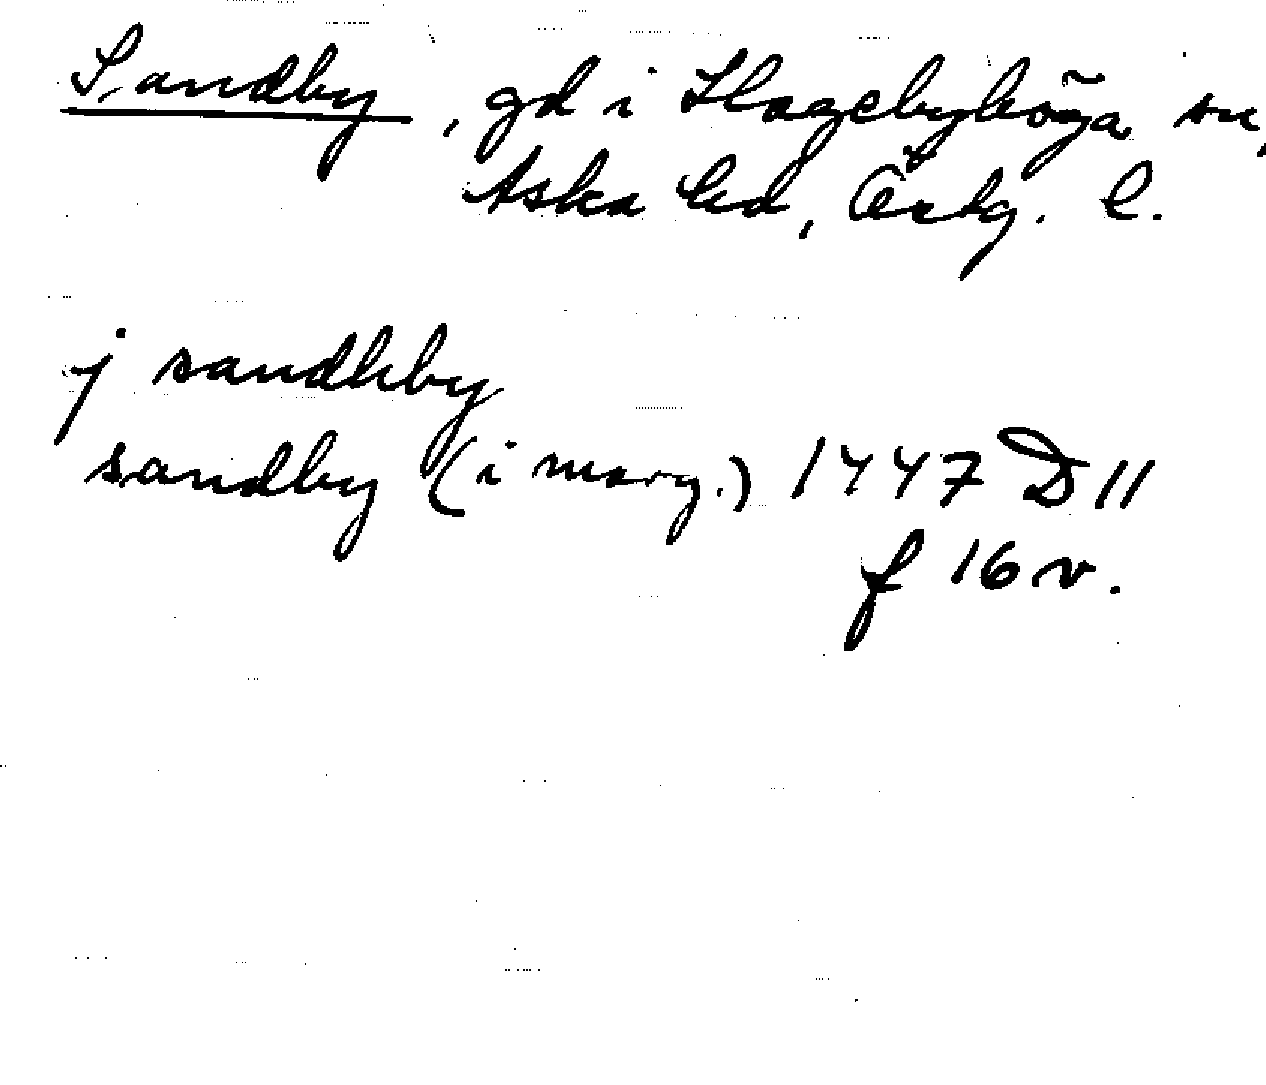 Sandby, gd i Hagebyhöga sn,
Aska hd, Östg. l.
j sandhby
sandby (i marg.) 1447 D 11
f 16 v.